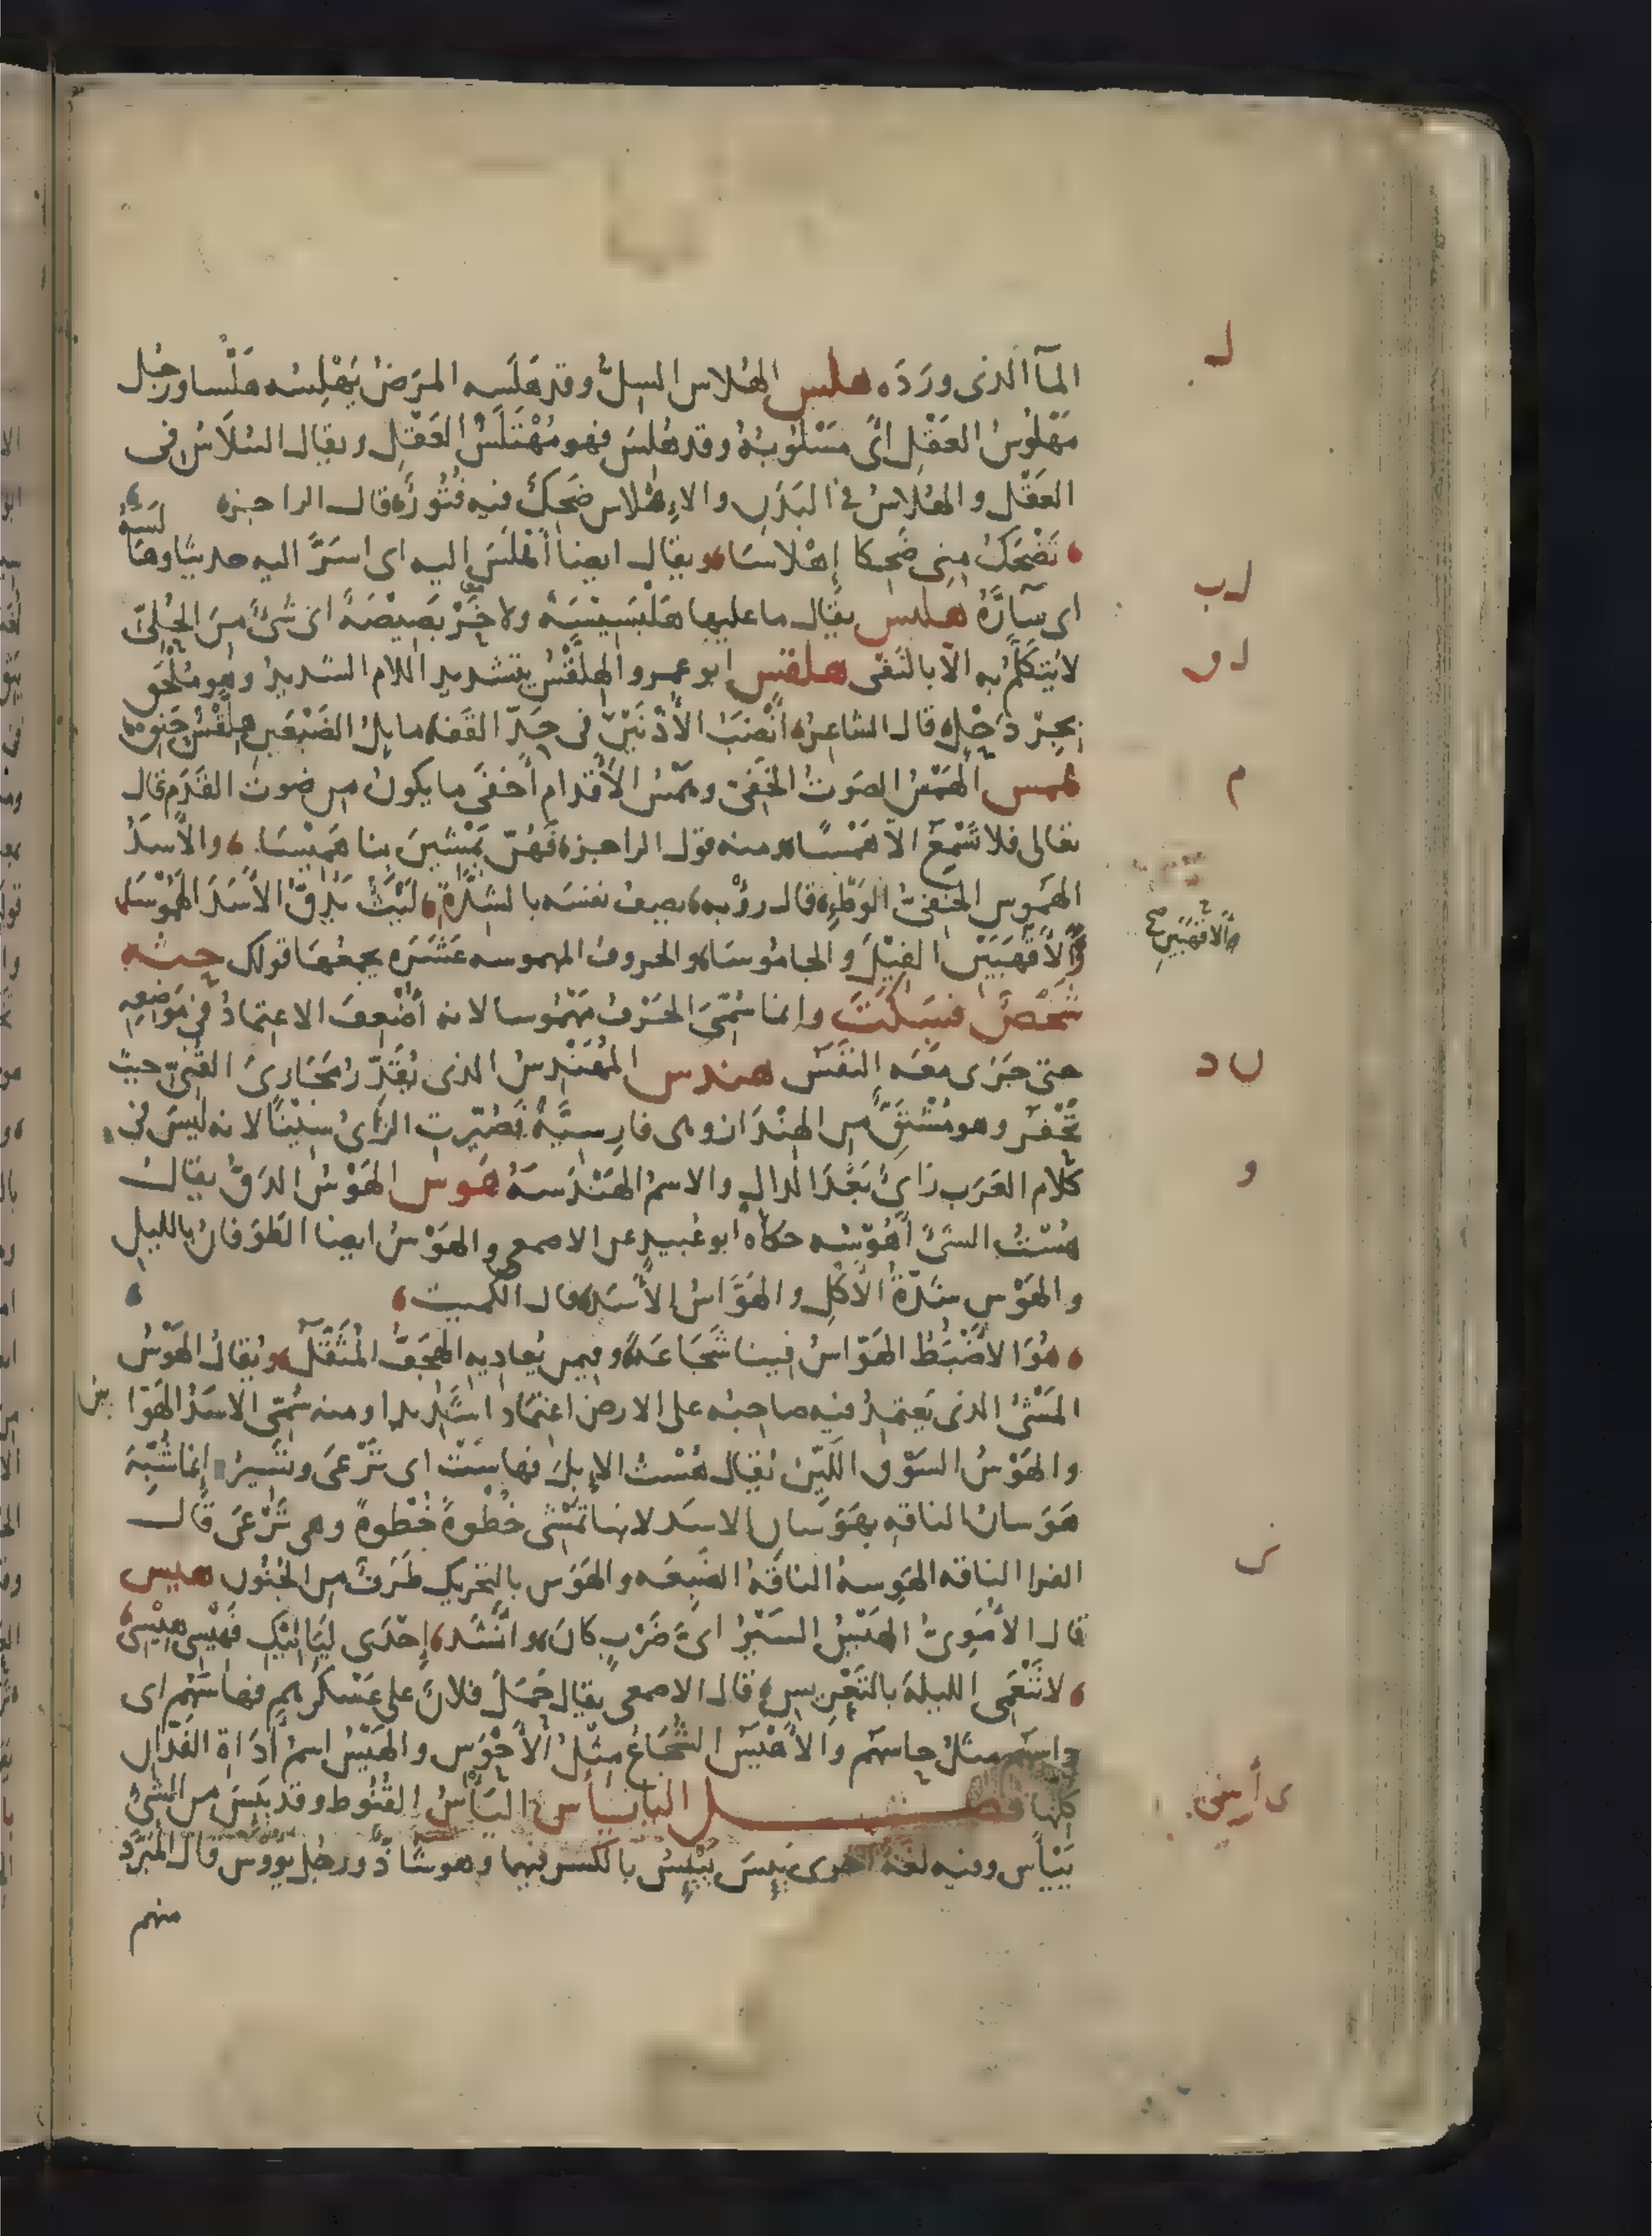 المآ الذى ورَدَه هلس الهُلاس السِلُّ وقد هَلَسه المرَضُ يَهْلِسُه هَلْسا ورجُل
مَهْلُوسُ العَقْلِ اىْ مَسْلُوبُهُ وقد هُلِسَ فهو مُهْتَلَسُ العَقْلِ ويقال السُلاَسُ فى
العَقْل والهُلاسُ فى البَدَنِ والاِهْلاس ضَحِكٌ فيه فُتُورٌ قال الراجزه
تَضْحَكُ مِنى ضَحِكا إهْلاسَا ويقال ايضا أَهْلَسَ اليه اى اسَرَّ اليه حديثا وهَا
لَسَهُ
اى سَآرَّهُ هلبس يقال ما عليها هَلْبَسِيْسَة ولا خَرْبَصِيْصَةً اى شَىْءٌ مِنَ الحُلِىّ
لا يُتَكَلَّمُ به الاّ بالنَفْى هلقس ابو عمرو الهِلَّقْسُ بتشديد اللام الشديدُ وهو مُلْحَق
بجِرْدَحْلٍ قال الشاعر انْصَبَ الأُذْنَيْنِ فى حَدِّ القَفَا مايِل الضَبْعَينِ هِلَّقْسٌ حَنِق
همس الهَمْسُ الصَوتُ الخَفِىّ وهَمْسُ الأَقْدامِ أَخفَى ما يكونُ من صَوت القَدَم قال
تعالى فلا تَسْمَعُ الاّ هَمْسًا ومنه قول الراجزه فَهُنّ يَمْشِينَ بِنا هَمِيْسَا والأَسدُ
الهَمُوس الخفىّ الوَطْءِ قال رؤْبه يصِف نفسَه بالشِدَّةِ لَيْثٌ يَدُقُّ الأَسَدَ الهَمُوْسَا
وَالأَقْهَبَيْنِ الفِيْلَ والجامُوسَا والحروف المهموسه عَشَرَه يجمعُها قولك حثه
شَخْصٌ فسَكَتَ وانما سُمِّىَ الحَرْفُ مَهْمُوسا لانه أُضْعِفَ الاعتمادُ فى مَوْضِعِه
حتى جَرَى مَعَه النفَسُ هندس المُهَنْدِسُ الذى يُقَدِّرُ مَجَارِىَ القُنِىّ حيث
تُحْفَر وهو مُشْتَقٌّ من الهِنْدَاز وهى فارِسيَّةٌ فصُيِّرتِ الزَاىُ سِيْنًا لانه ليسَ فى
كلام العَرَب زاىٌ بَعْدَ الدال والاسم الهَنْدَسَةُ هوس الهَوْسُ الدَقُّ يقال
هُسْتُ الشَىْءَ أَهُوْسُه حكاه ابو عُبيد عن الاصمعى والهَوْسُ ايضا الطَوَفانُ بالليلِ
والهَوْس شدّةُ الأَكْلِ والهَوَّاسُ الأَسَد قال الكميت
هُوَ الاَضْبَطُ الهَوّاسُ فينا شَجَاعَةً وفيمن يُعاديه الهِجَفُّ المُثَقَّلُ ويُقالُ الهَوْسُ
المَشْىُ الذى يَعتمِدُ فيه صاحِبُه على الارض اعتِمَادا شَدِيدا ومنه سُمِّى الاسَدُ الهَوّا
س
والهَوْسُ السَوْق اللَيِّنُ يُقال هُسْتُ الإبِلَ فهاسَتْ اى تَرْعَى وتَسِيرُ إنما شُبِّهَ
هَوَسانُ الناقهِ بهَوَسانِ الاسَد لانها تَمْشى خُطْوةً خُطْوةً وهى تَرْعَى قال
الفرا الناقه الهَوِسهُ الناقَةُ الضَبِعَه والهَوَس بالتحريك طَرَفٌ من الجُنُون هيس
قال الأُمَوِىُّ الهَيْسُ السَيْرُ اىَّ ضَرْبٍ كانَ وانْشَد إحْدَى لَيَالِيْكِ فهِيْسِى هِيْسِى
لا تَنْعَمِى الليلةَ بالتَعْرِيسِ قال الاصمعى يقال حَمَلَ فلانٌ على عَسْكَرِهم فهاسَهُم اى
داسهم مثلُ حاسهم والأَهْيَسُ الشُجَاعُ مِثْلُ الأَحْوَس والهَيْسُ اسمُ أَدَاةِ الفَدّانِ
كلها فصـــل اليا يأس اليَأْسُ القُنُوط وقد يَئِسَ من الشىءِ
يَيْأَس وفيه لغةٌ اخرى يَئِسَ يَيْئِسُ بالكسر فيهما وهو شاذٌّ ورجُل يووس قال المُبَرّد
منهم
ل
لب
لق
م
والاقهَبَينِ صح
ن د
و
ى
ى أ